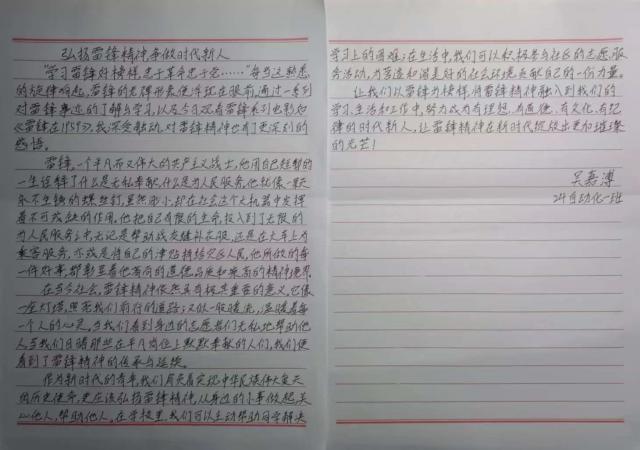 弘扬雷锋精神,争做时代新人
"学习雷锋好榜样,忠于革命忠于党……"每当这熟悉
的旋律响起,雷锋的光辉形象便浮现在眼前,通过一系列
对雷锋事迹的了解与学习,以及今日观看雷锋系列电影如
《雷锋在1959》,我深受触动,对雷锋精神也有了更深刻的
感悟。
雷锋,一个平凡而又伟大的共产主义战士,他用自己短暂的
一生诠释了什么是无私奉献,什么是为人民服务,他就像一颗永
不生锈的螺丝钉,虽然渺小,却在社会这个大机器中发挥
着不可或缺的作用。他把自己有限的生命,投入到了无限的
为人民服务之中,无论是帮助战友缝补衣服,还是在火车上为
乘客服务,亦或是将自己的津贴捐给灾区人民,他所做的每
一件好事,都彰显着他高尚的道德品质和崇高的精神境界。
在当今社会,雷锋精神依然具有极其重要的意义,它像
一座灯塔,照亮我们前行的道路;又似一股暖流,温暖着每
一个人的心灵,当我们看到身边的志愿者们无私地帮助他
人,当我们目睹那些在平凡岗位上默默奉献的人们,我们便
看到了雷锋精神的传承与延续。
作为新时代的青年,我们肩负着实现中华民族伟大复兴
的历史使命,更应该弘扬雷锋精神,从身边的小事做起,关
心他人,帮助他人。在学校里,我们可以主动帮助同学解决
学习上的困难;在生活中,我们可以积极参与社区的志愿服
务活动,为营造和谐美好的社会环境贡献自己的一份力量。
让我们以雷锋为榜样,将雷锋精神融入到我们的
学习、生活和工作中,努力成为有理想、有道德、有文化、有纪
律的时代新人,让雷锋精神在新时代绽放出更加璀璨
的光芒!
吴嘉溥
24自动化一班